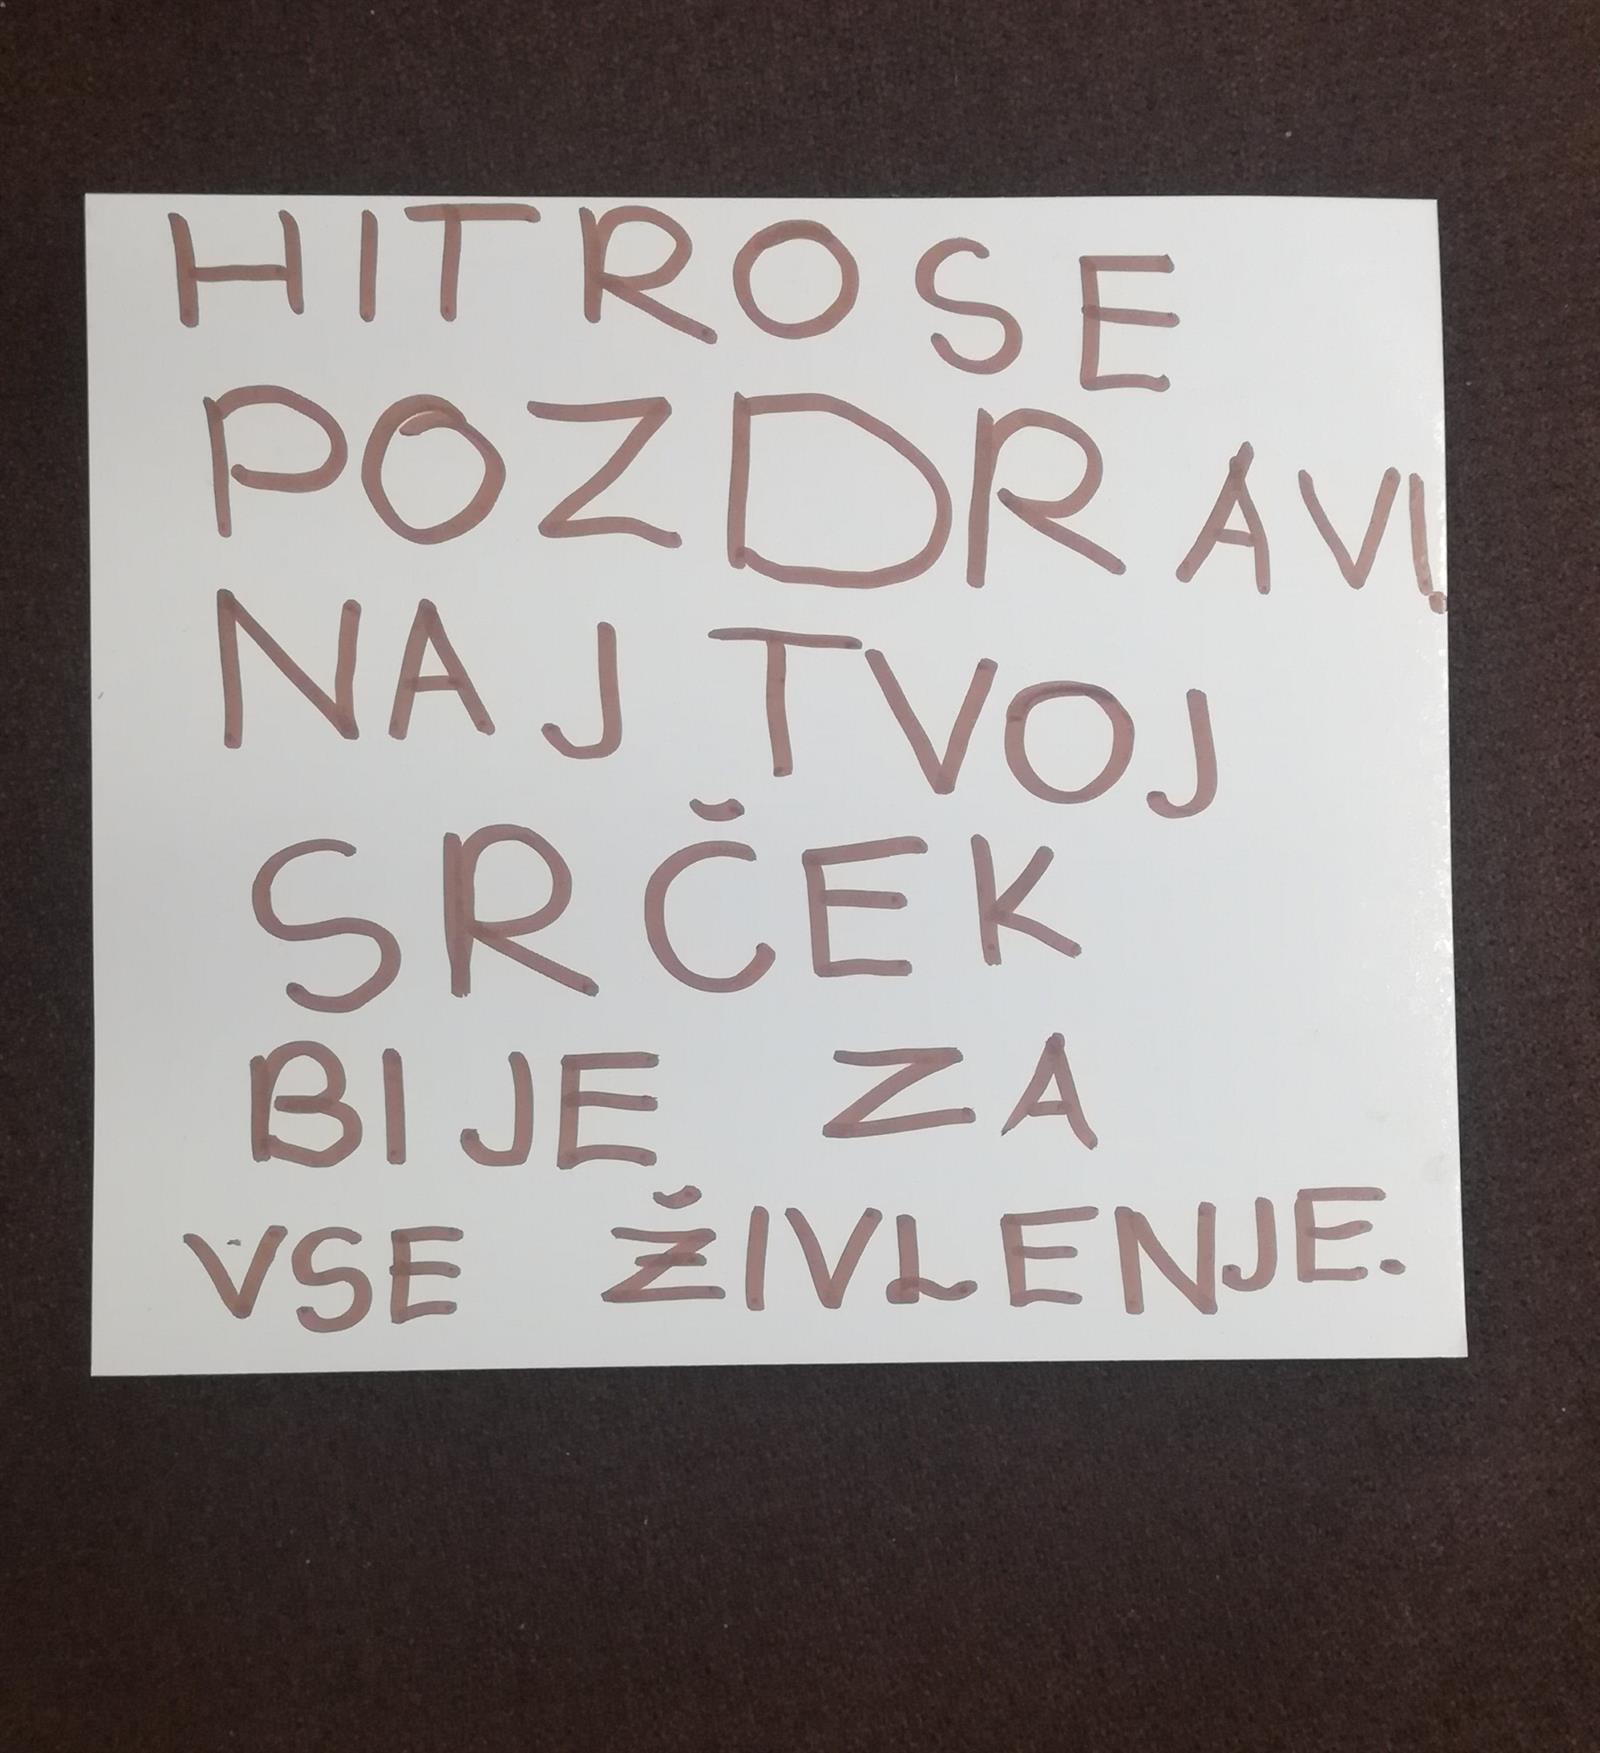 HITRO SE
POZDRAVI!
NAJ TVOJ
SRČEK
BIJE ZA
VSE ŽIVLENJE.